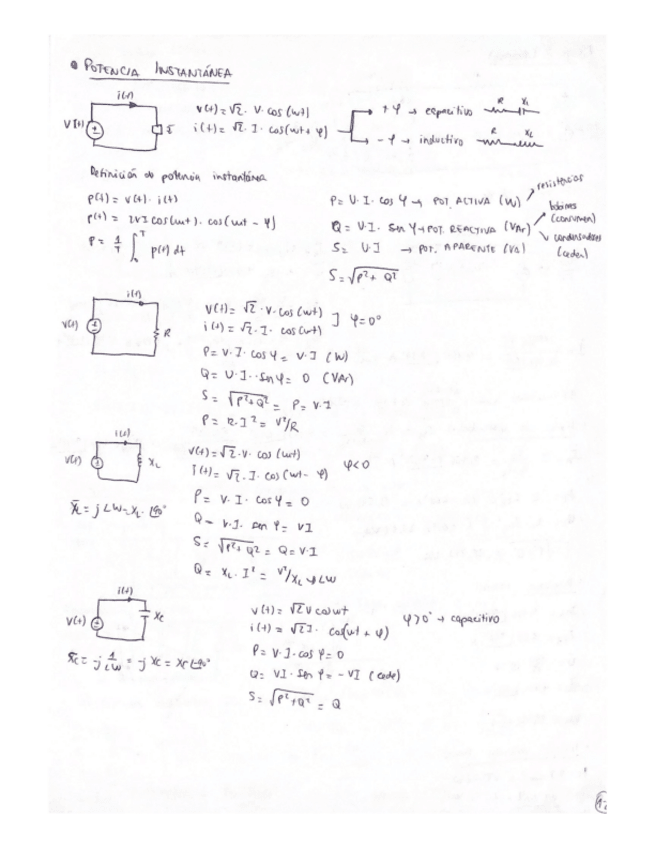 • POTENCIA INSTANTÁNEA
i(t)
V(t)
v(t) = √2 · V · cos(wt)
i(t) = √2 · I · cos(wt + φ)
+ φ → capacitivo
R XL
- φ → inductivo
R XL
Definición de potencia instantánea
p(t) = v(t) · i(t)
p(t) = 2VI cos(wt) · cos(wt - φ)
P = 1/T ∫₀ᵀ p(t) dt
P = V · I · cos φ → POT. ACTIVA (W) resistencias
Q = V · I · sen φ → POT. REACTIVA (VAr) bobinas (consumen) condensadores (ceden)
S = V · I → POT. APARENTE (VA)
S = √P² + Q²
i(t)
V(t) R
v(t) = √2 · V · cos(wt)
i(t) = √2 · I · cos(wt) ] φ = 0°
P = V · I · cos φ = V · I (W)
Q = V · I · sen φ = 0 (VAr)
S = √P² + Q² = P = V · I
P = R · I² = V²/R
i(t)
V(t) XL
X̄L = j L W = XL · ∠90°
v(t) = √2 · V · cos(wt)
i(t) = √2 · I · cos(wt - φ) φ < 0
P = V · I · cos φ = 0
Q = V · I · sen φ = VI
S = √P² + Q² = Q = V · I
Q = XL · I² = V²/XL → LW
i(t)
V(t) Xc
X̄c = -j 1/LW = -j Xc = Xc ∠-90°
v(t) = √2 V cos wt
i(t) = √2 I · cos(wt + φ) φ > 0° → capacitivo
P = V · I · cos φ = 0
Q = VI · sen φ = - VI (cede)
S = √P² + Q² = Q